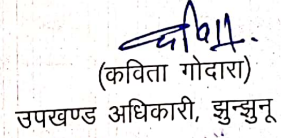 (कविता गोदारा)
उपखण्ड अधिकारी, झुन्झुनू